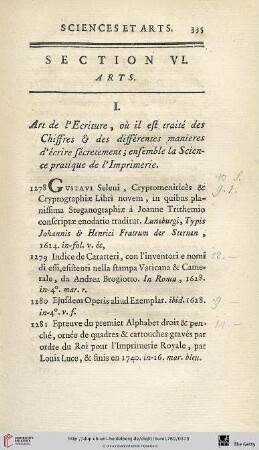 SCIENCES ET ARTS. 335
SECTION VI.
ARTS.
I.
Art de l'Ecriture, où il est traité des
Chiffres & des différentes manieres
d'écrire sécretement; ensemble la Scien-
ce pratique de l'Imprimerie.
1278 GUSTAVI Seleni, Cryptomenitices &
Cryptographiæ Libri novem, in quibus pla-
nissima Steganographiæ à Joanne Trithemio
conscriptæ enodatio traditur. Lunaburgi, Typis
Johannis & Henrici Fratrum der Sternen,
1624. in-fol. v. éc,
1279 Indice de Caratteri, con l'inventori e nomi
di essi, esistenti nella stampa Vaticana & Came-
rale, da Andrea Brogiotto. In Roma, 1628.
in-4°. mar. r.
1280 Ejusdem Operis aliud Exemplar. ibid. 1628.
in-4°. v. f.
1281 Epreuve du premier Alphabet droit & pen-
ché, ornée de quadres & cartouches gravés par
ordre du Roi pour l'Imprimerie Royale, par
Louis Luce, & finis en 1740. in-16. mar. bleu.